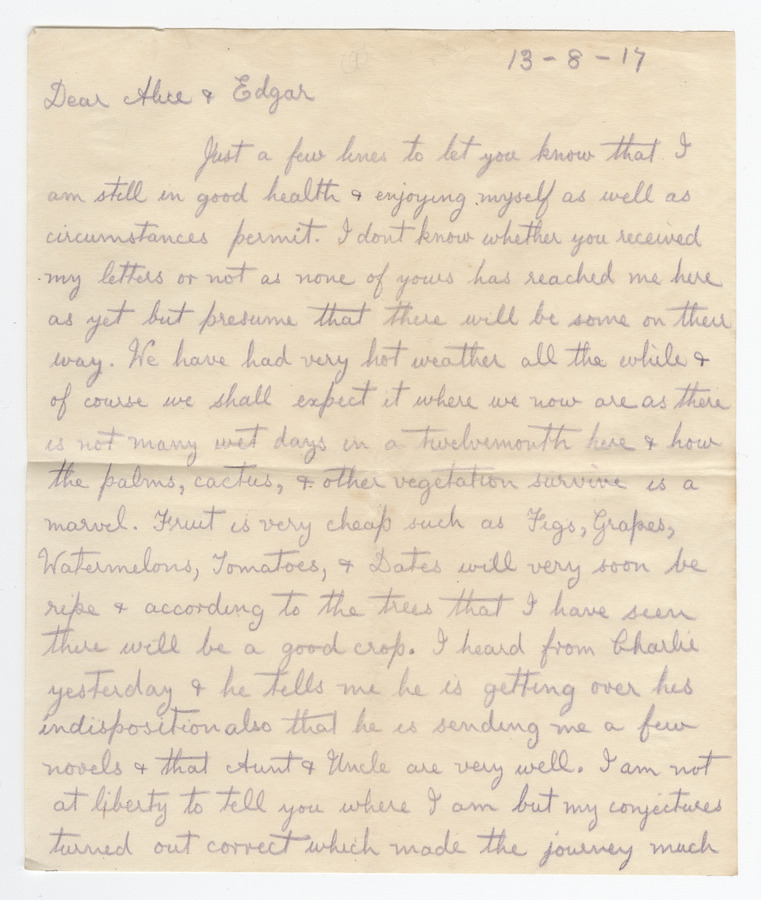 13 - 8 - 17
Dear Alice & Edgar
Just a few lines to let you know that I
am still in good health & enjoying myself as well as
circumstances permit. I dont know whether you received
my letters or not as none of yours has reached me here
as yet but presume that there will be some on their
way. We have had very hot weather all the while &
of course we shall expect it where we now are as there
is not many wet days in a twelvemonth here & how
the palms, cactus, & other vegetation survive is a
marvel. Fruit is very cheap such as Figs, Grapes,
Watermelons, Tomatoes, & Dates will very soon be
ripe & according to the trees that I have seen
there will be a good crop. I heard from Charlie
yesterday & he tells me he is getting over his
indisposition also that he is sending me a few
novels & that Aunt & Uncle are very well. I am not
at liberty to tell you where I am but my conjectures
turned out correct which made the journey much